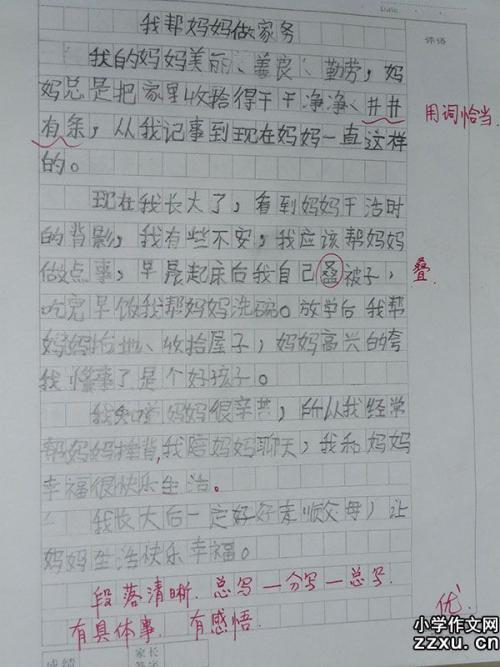 我帮妈妈做家务
我的妈妈美丽、善良、勤劳，妈
妈总是把家里收拾得干干净净、井井
有条，从我记事到现在妈妈一直这样
的。
现在我长大了，看到妈妈干活时
的背影，我有些不安，我应该帮妈妈
做点事，早晨起床后我自己叠被子，
吃完早饭我帮妈妈洗碗。放学后我帮
妈妈拖地、收拾屋子，妈妈高兴的夸
我懂事了是个好孩子。
我知道妈妈很辛苦，所以我经常
帮妈妈捶背，我陪妈妈聊天，我和妈妈
幸福很快乐生活。
我长大后一定好好孝顺父母，让
妈妈生活快乐幸福。
评语
用词恰当.
叠.
段落清晰.总写一分写一总写.
有具体事.有感悟.
优.
成绩
家长
签字
小学作文网
zzxu.cn